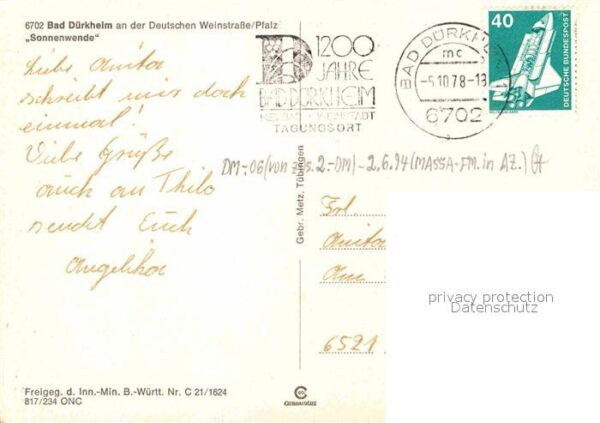 6702 Bad Dürkheim an der Deutschen Weinstraße/Pfalz
„Sonnenwende“
Liebe Anita
schreibt mir doch
einmal!
Viele Grüße
auch an Thilo
sendet Euch
Angelika
1200
JAHRE
BAD DÜRKHEIM
HEILBAD · WEINSTADT
TAGUNGSORT
BAD DÜRKHEIM 1
mc
-5.10.78-18
6702
40
DEUTSCHE BUNDESPOST
DM-,06 (von 2.-DM) - 2.6.94 (MASSA-FM. in AZ.)
Gebr. Metz, Tübingen
Frl.
Anita
Am
6521
privacy protection
Datenschutz
Freigeg. d. Inn.-Min. B.-Württ. Nr. C 21/1624
817/234 ONC